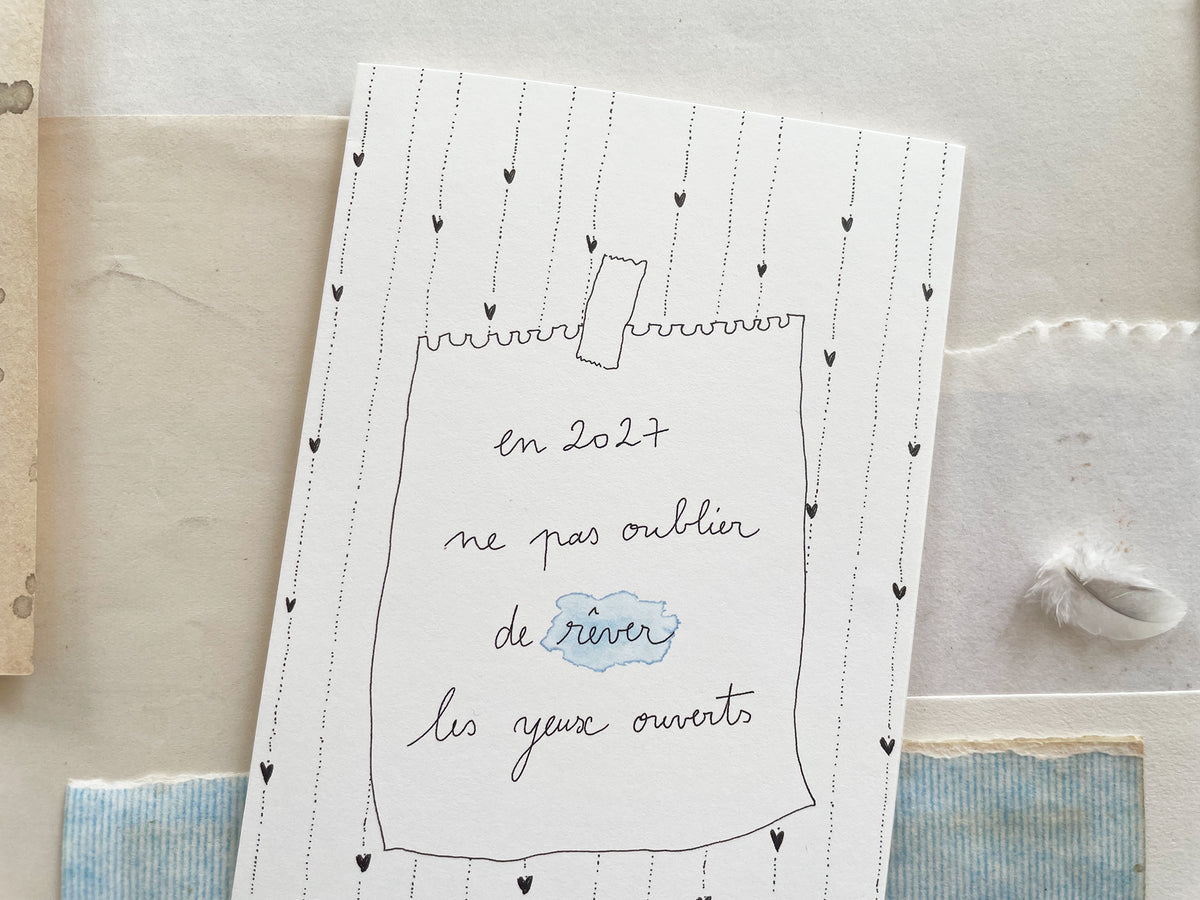 en 2027
ne pas oublier
de rêver
les yeux ouverts